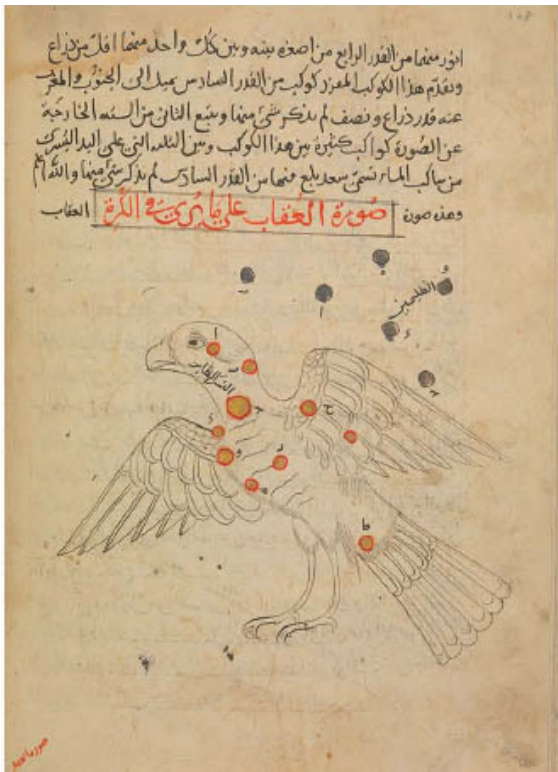 انور منهما من القدر الرابع من اصغره بينه وبين كل واحد منهما اقل من ذراع
ويتقدم هذا الكوكب المفرد كوكب من القدر السادس يميل الى الجنوب والمغرب
عنه قدر ذراع ونصف لم يذكر شى منها ويتبع الثانى من السته الخارجة
عن الصورة كواكب كثيرة بين هذا الكوكب وبين الثلثه التى على اليد اليسرى
من ساكب الماء تسمى سعد بلع فيها من القدر السادس لم يذكر شى منها والله اعلم
وهذه صورة صورة العقاب على ما يرى فى الكرة العقاب
الظليمين
النسر الطاير